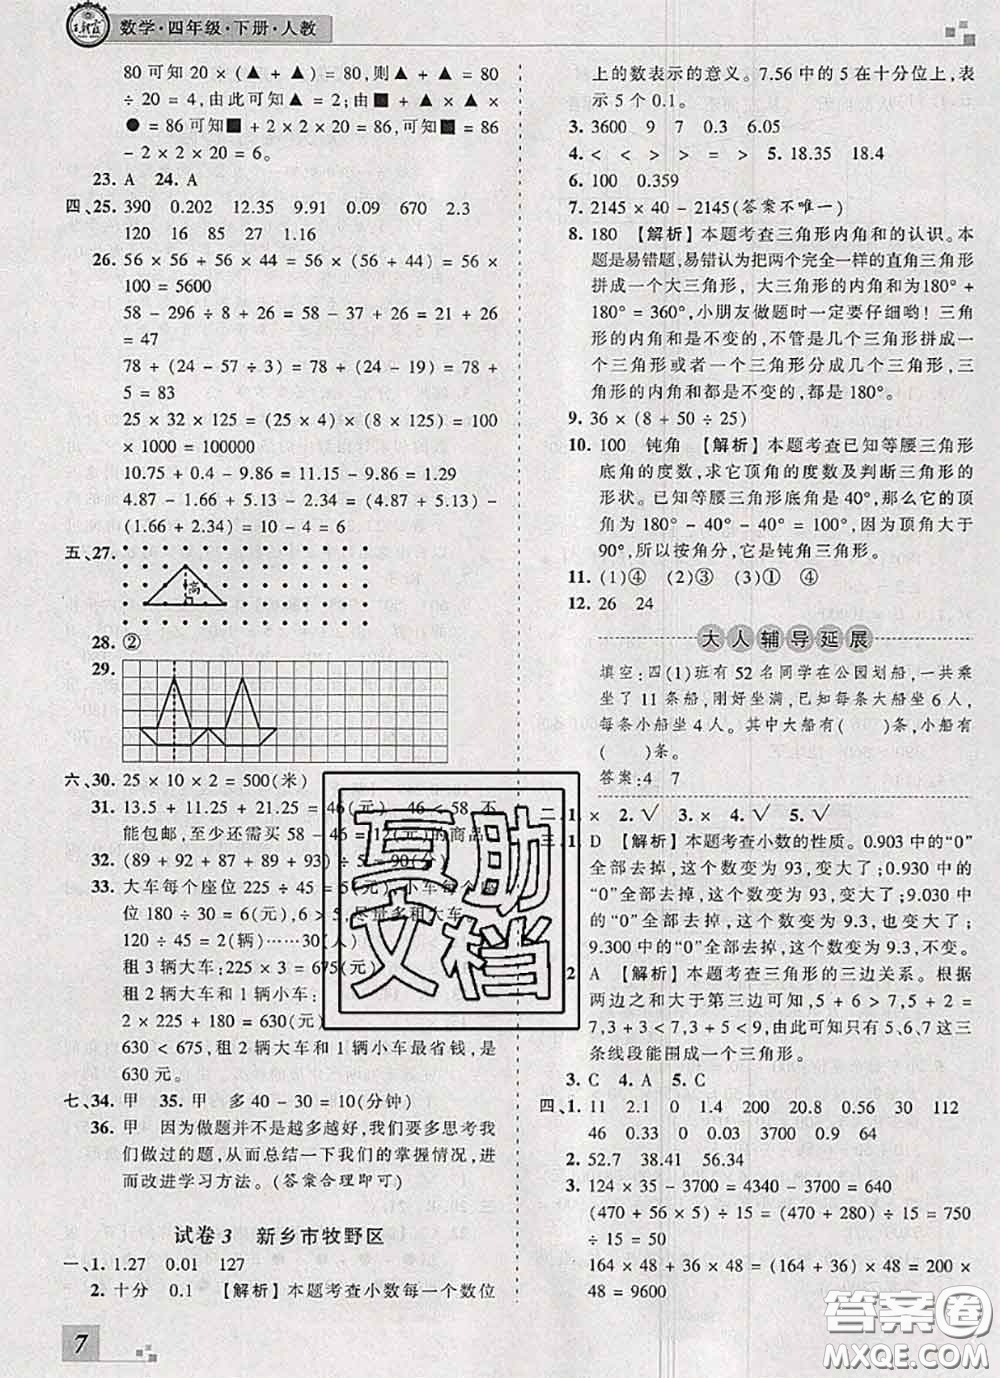 数学·四年级·下册·人教
80可知20×(▲+▲)=80,则▲+▲=80
÷20=4,由此可知▲=2;由■+▲×▲×
●=86可知■+2×2×20=86,可知■=86
-2×2×20=6。
23. A 24. A
四、25. 390 0.202 12.35 9.91 0.09 670 2.3
120 16 85 27 1.16
26. 56×56+56×44=56×(56+44)=56×
100=5600
58-296÷8+26=58-37+26=21+26
=47
78+(24-57÷3)=78+(24-19)=78
+5=83
25×32×125=(25×4)×(8×125)=100
×1000=100000
10.75+0.4-9.86=11.15-9.86=1.29
4.87-1.66+5.13-2.34=(4.87+5.13)-
(1.66+2.34)=10-4=6
五、27.
高
28. ②
29.
六、30. 25×10×2=500(米)
31. 13.5+11.25+21.25=46(元) 46<58,不
能包邮,至少还需买58-46=12(元)的商品。
32. (89+92+87+89+93)÷5=90(分)
33. 大车每个座位225÷45=5(元),小车每个座
位180÷30=6(元),6>5,尽量多租大车。
120÷45=2(辆)……30(人)
租3辆大车:225×3=675(元)
租2辆大车和1辆小车:
2×225+180=630(元)
630<675,租2辆大车和1辆小车最省钱,是
630元。
七、34. 甲 35. 甲 多40-30=10(分钟)
36. 甲 因为做题并不是越多越好,我们要多思考我
们做过的题,从而总结一下我们的掌握情况,进
而改进学习方法。(答案合理即可)
试卷3 新乡市牧野区
一、1. 1.27 0.01 127
2. 十分 0.1 【解析】本题考查小数每一个数位
7
上的数表示的意义。7.56中的5在十分位上,表
示5个0.1。
3. 3600 9 7 0.3 6.05
4. < < > > = > 5. 18.35 18.4
6. 100 0.359
7. 2145×40-2145(答案不唯一)
8. 180 【解析】本题考查三角形内角和的认识。本
题是易错题,易错认为把两个完全一样的直角三角形
拼成一个大三角形,大三角形的内角和为180°+
180°=360°,小朋友做题时一定要仔细哟!三角
形的内角和是不变的,不管是几个三角形拼成一
个三角形或者一个三角形分成几个三角形,三角
形的内角和都是不变的,都是180°。
9. 36×(8+50÷25)
10. 100 钝角 【解析】本题考查已知等腰三角形
底角的度数,求它顶角的度数及判断三角形的
形状。已知等腰三角形底角是40°,那么它的顶
角为180°-40°-40°=100°,因为顶角大于
90°,所以按角分,它是钝角三角形。
11. (1)④ (2)③ (3)① ④
12. 26 24
大人辅导延展
填空:四(1)班有52名同学在公园划船,一共乘
坐了11条船,刚好坐满,已知每条大船坐6人,
每条小船坐4人。其中大船有( )条,小船有
( )条。
答案:4 7
二、1. × 2. √ 3. × 4. √ 5. √
三、1. D 【解析】本题考查小数的性质。0.903中的“0”
全部去掉,这个数变为93,变大了;0.930中的
“0”全部去掉,这个数变为93,变大了;9.030中
的“0”全部去掉,这个数变为9.3,也变大了;
9.300中的“0”全部去掉,这个数变为9.3,不变。
2 A 【解析】本题考查三角形的三边关系。根据
两边之和大于第三边可知,5+6>7,5+7=
7,3+9>7,3+5<9,由此可知只有5、6、7这三
条线段能围成一个三角形。
3. C 4. A 5. C
四、1. 11 2.1 0 1.4 200 20.8 0.56 30 112
46 0.33 0 0.03 3700 0.9 64
2. 52.7 38.41 56.34
3. 124×35-3700=4340-3700=640
(470+56×5)÷15=(470+280)÷15=750
÷15=50
164×48+36×48=(164+36)×48=200×
48=9600
互助
文档
答案圈
MXQE.COM